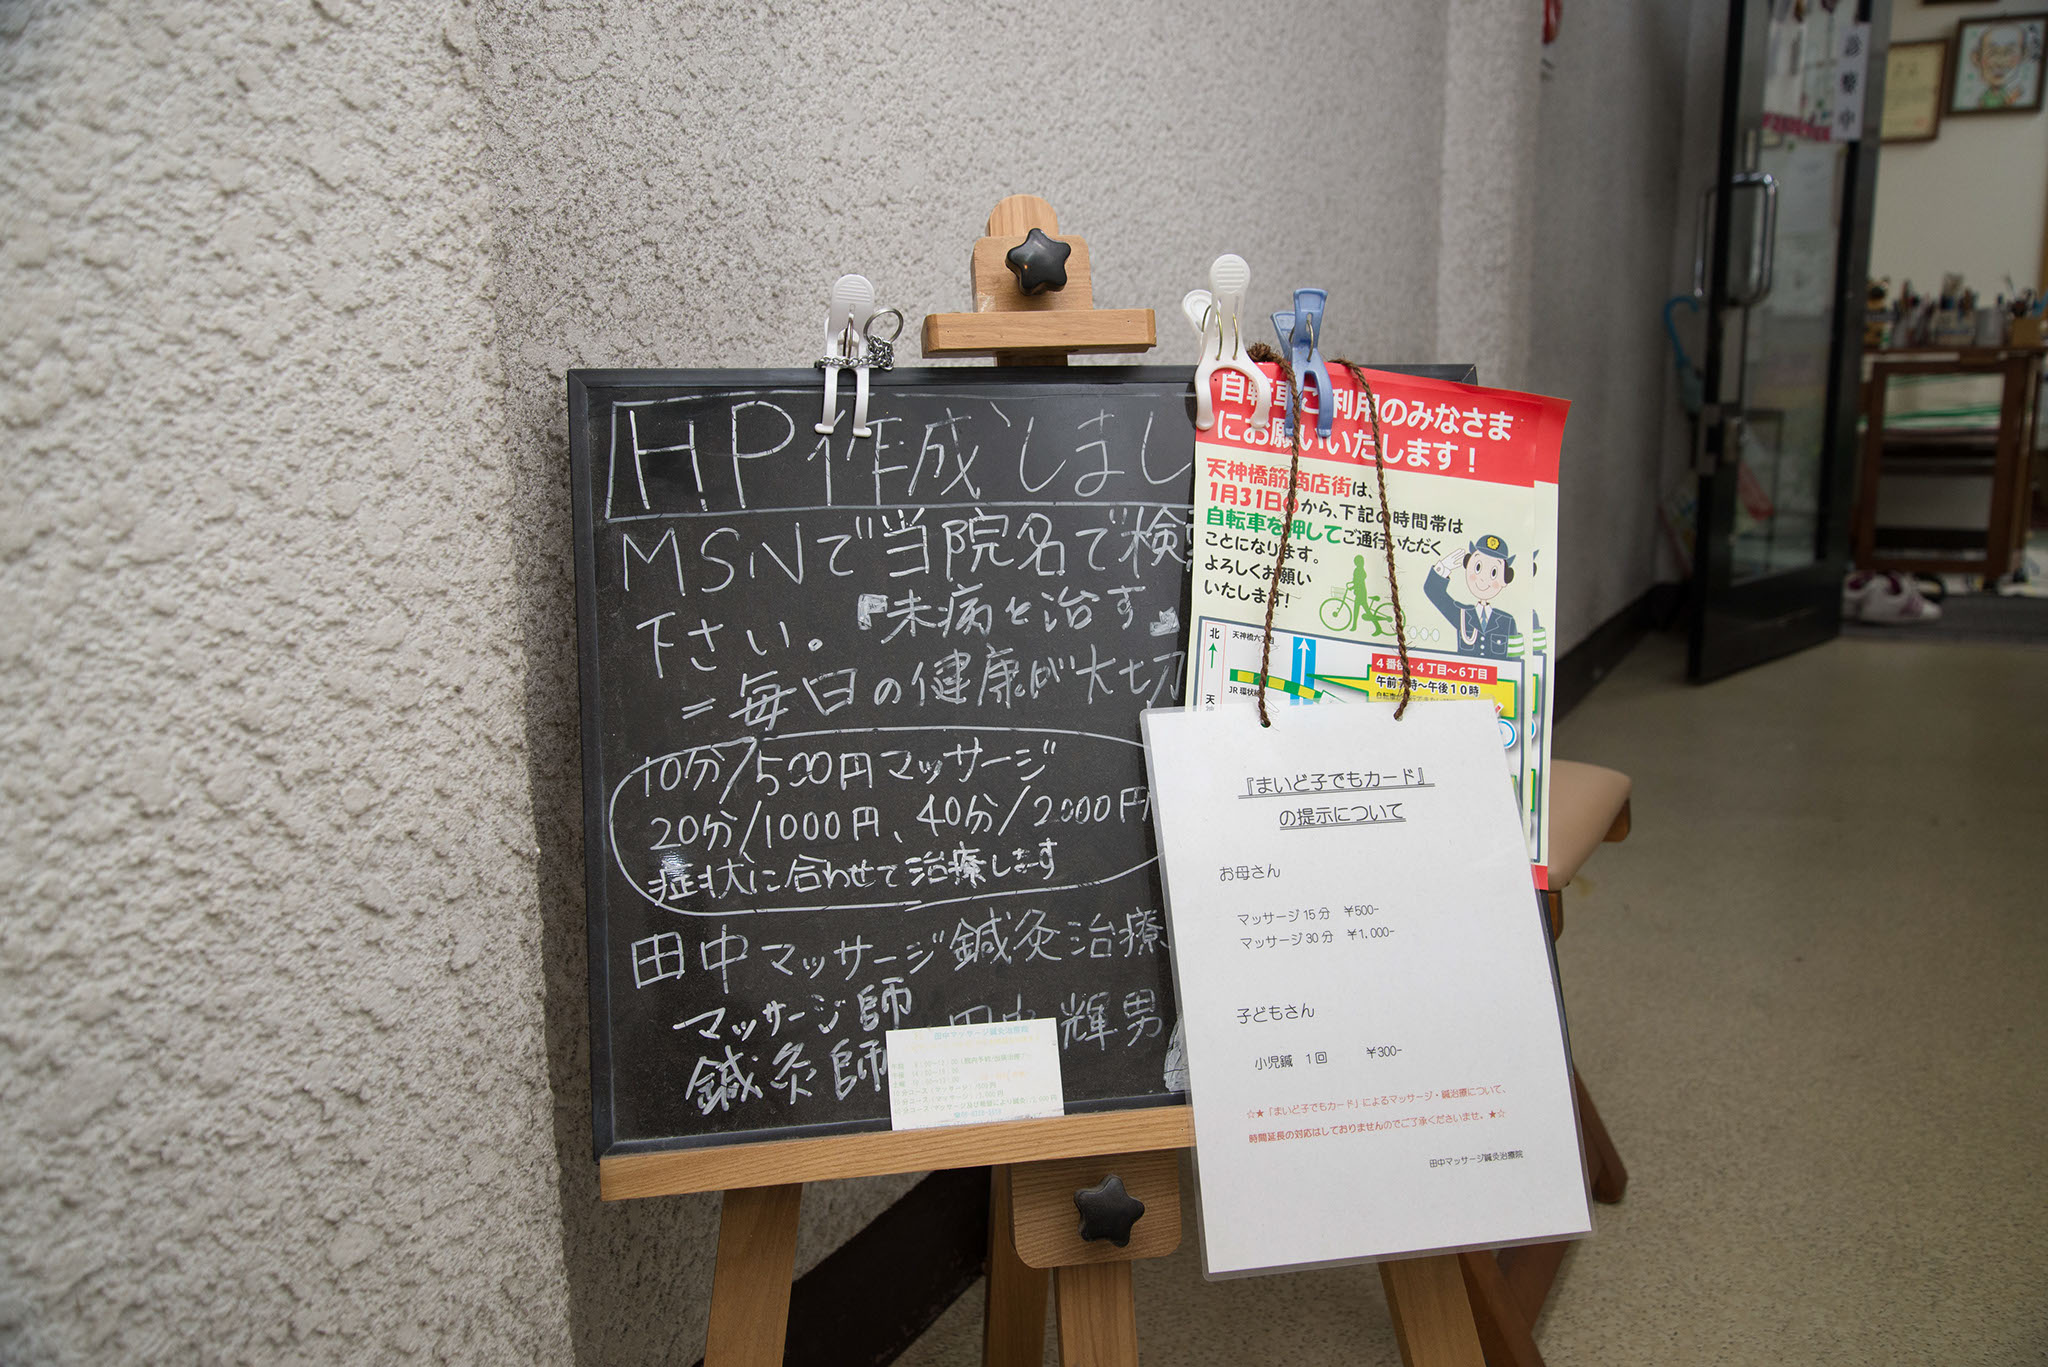 HP作成しまし
MSNで当院名で検
下さい。『未病を治す』
=毎日の健康が大切
10分/500円マッサージ
20分/1000円、40分/2000円
症状に合わせて治療します
田中マッサージ鍼灸治療
マッサージ師
鍼灸師
田中輝男
田中マッサージ鍼灸治療院
自転車ご利用のみなさま
にお願いいたします!
天神橋筋商店街は、
1月31日
から、下記の時間帯は
自転車を押してご通行いただく
ことになります。
よろしくお願い
いたします!
北
天神橋六丁目
JR環状線
4番街・4丁目~6丁目
午前7時~午後10時
『まいど子でもカード』
の提示について
お母さん
マッサージ15分 ¥500-
マッサージ30分 ¥1,000-
子どもさん
小児鍼 1回 ¥300-
☆★「まいど子でもカード」によるマッサージ・鍼治療について、
時間延長の対応はしておりませんのでご了承くださいませ。★☆
田中マッサージ鍼灸治療院
診療中